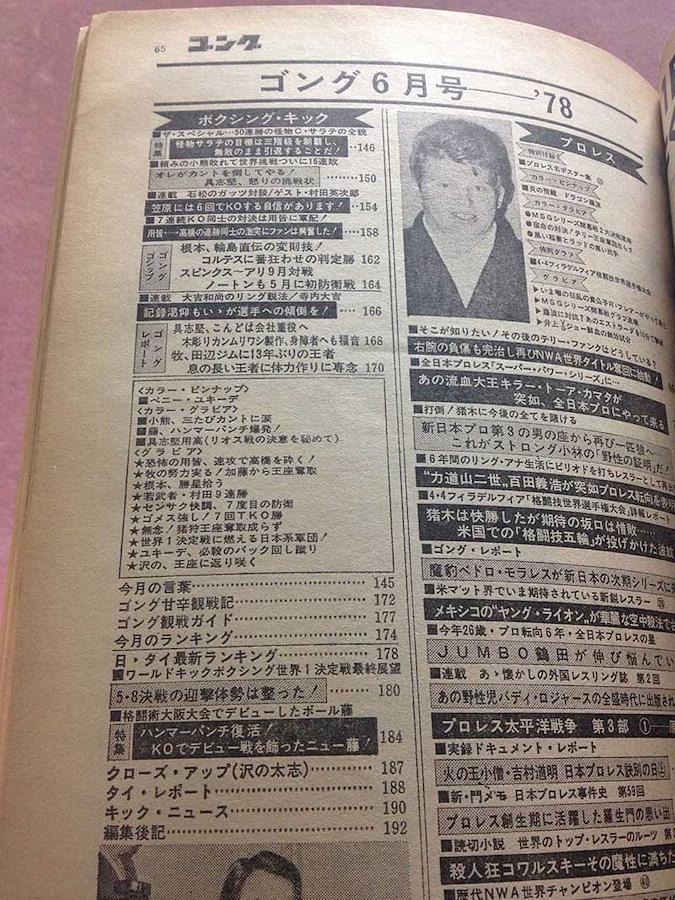 65 ゴング
ゴング6月号——'78
ボクシング・キック
■ザ・スペシャル…50連勝の怪物C・サラテの全貌
特集 怪物サラテの目標は三階級を制覇し、無敗のまま引退することだ! …146
■頼みの小熊敗れて世界挑戦ついに16連敗
オレがカントを倒してやる!
具志堅、怒りの挑戦状 ………150
■連載 石松のガッツ対談/ゲスト・村田英次郎
笠原には6回でKOする自信があります! …154
■7連続KO同士の対決は用皆に軍配!
用皆・一高橋の連勝同士の激突にファンは興奮した! …158
ゴングゴシップ
根本、輪島直伝の変則技!
コルテスに番狂わせの判定勝 162
スピンクス〜アリ9月対戦
ノートンも5月に初防衛戦 164
■連載 大吉和尚のリング説法/寺内大吉
記録渇仰もいゝが選手への傾倒を! …… 166
ゴングレポート
具志堅、こんどは会社重役へ
木彫りカンムリワシ製作、身障者へも福音 168
牧、田辺ジムに13年ぶりの王者
息の長い王者に体力作りに専念 170
〈カラー・ピンナップ〉
■ベニー・ユキーデ
〈カラー・グラビア〉
■小熊、三たびカントに涙
■藤、ハンマーパンチ爆発!
■具志堅用高(リオス戦の決意を秘めて)
〈グラビア〉
★恐怖の用皆、速攻で高橋を砕く!
★牧の努力実る!加藤から王座奪取
★根本、勝星拾う
★若武者・村田9連勝
★センサク快調、7度目の防衛
★ゴメス強し!7回TKO勝
★無念!猪狩王座奪取成らず
★世界1決定戦に燃える日本系軍団!
★ユキーデ、必殺のバック回し蹴り
★沢の、王座に返り咲く
今月の言葉……………………145
ゴング甘辛観戦記……………172
ゴング観戦ガイド……………177
今月のランキング……………174
日・タイ最新ランキング……178
■ワールドキックボクシング世界1決定戦最終展望
5・8決戦の迎撃体勢は整った! ……180
■格闘術大阪大会でデビューしたポール藤
特集 ハンマーパンチ復活!
KOでデビュー戦を飾ったニュー藤! 184
クローズ・アップ(沢の太志)………187
タイ・レポート………………188
キック・ニュース……………190
編集後記………………………192
プロレス
特別付録
■プロレス名ポスター集
カラー・ピンナップ
■炎の飛龍 ドラゴン藤波
カラー・グラビア
●MSGシリーズ開幕戦
特別グラフ
■4・4フィラデルフィア格闘技世界選手権大会
グラビア
■そこが知りたい!その後のテリー・ファンクはどうしている?
右腕の負傷も完治し再びNWA世界タイトル奪回に始動!
■全日本プロレス「スーパー・パワー・シリーズ」に…
あの流血大王キラー・トーア・カマタが
突如、全日本プロにやって来る
■打倒!猪木に今後の全てを賭ける
新日本プロ第3の男の座から再び一匹狼へ…
これがストロング小林の「野性の証明」だ!
■6年間のリング・アナ生活にピリオドを打ちレスラーとして再
“力道山二世”百田義浩が突如プロレス転向を
■4・4フィラデルフィア「格闘技世界選手権大会」詳報レポート
猪木は快勝したが期待の坂口は惜敗……
米国での「格闘技五輪」が投げかけた波紋
■ゴング・レポート
魔豹ペドロ・モラレスが新日本の次期シリーズに
■米マット界でいま期待されている新鋭レスラー
メキシコの“ヤング・ライオン”が華麗な空中殺法で
■今年26歳・プロ転向6年・全日本プロレスの星
JUMBO鶴田が伸び悩んでい
■連載 あゝ懐かしの外国レスリング誌 第2回
あの野性児バディ・ロジャースの全盛時代に出版さ
プロレス太平洋戦争 第3部 ①
■実録ドキュメント・レポート
火の玉小僧・吉村道明 日本プロレス訣別の日
■新・門メモ 日本プロレス事件史 第59回
プロレス創生期に活躍した羅生門の思い出
■読切小説 世界のトップ・レスラーのルーツ 第3
殺人狂コワルスキーその魔性に満ちた
■歴代NWA世界チャンピオン登場 ㊵